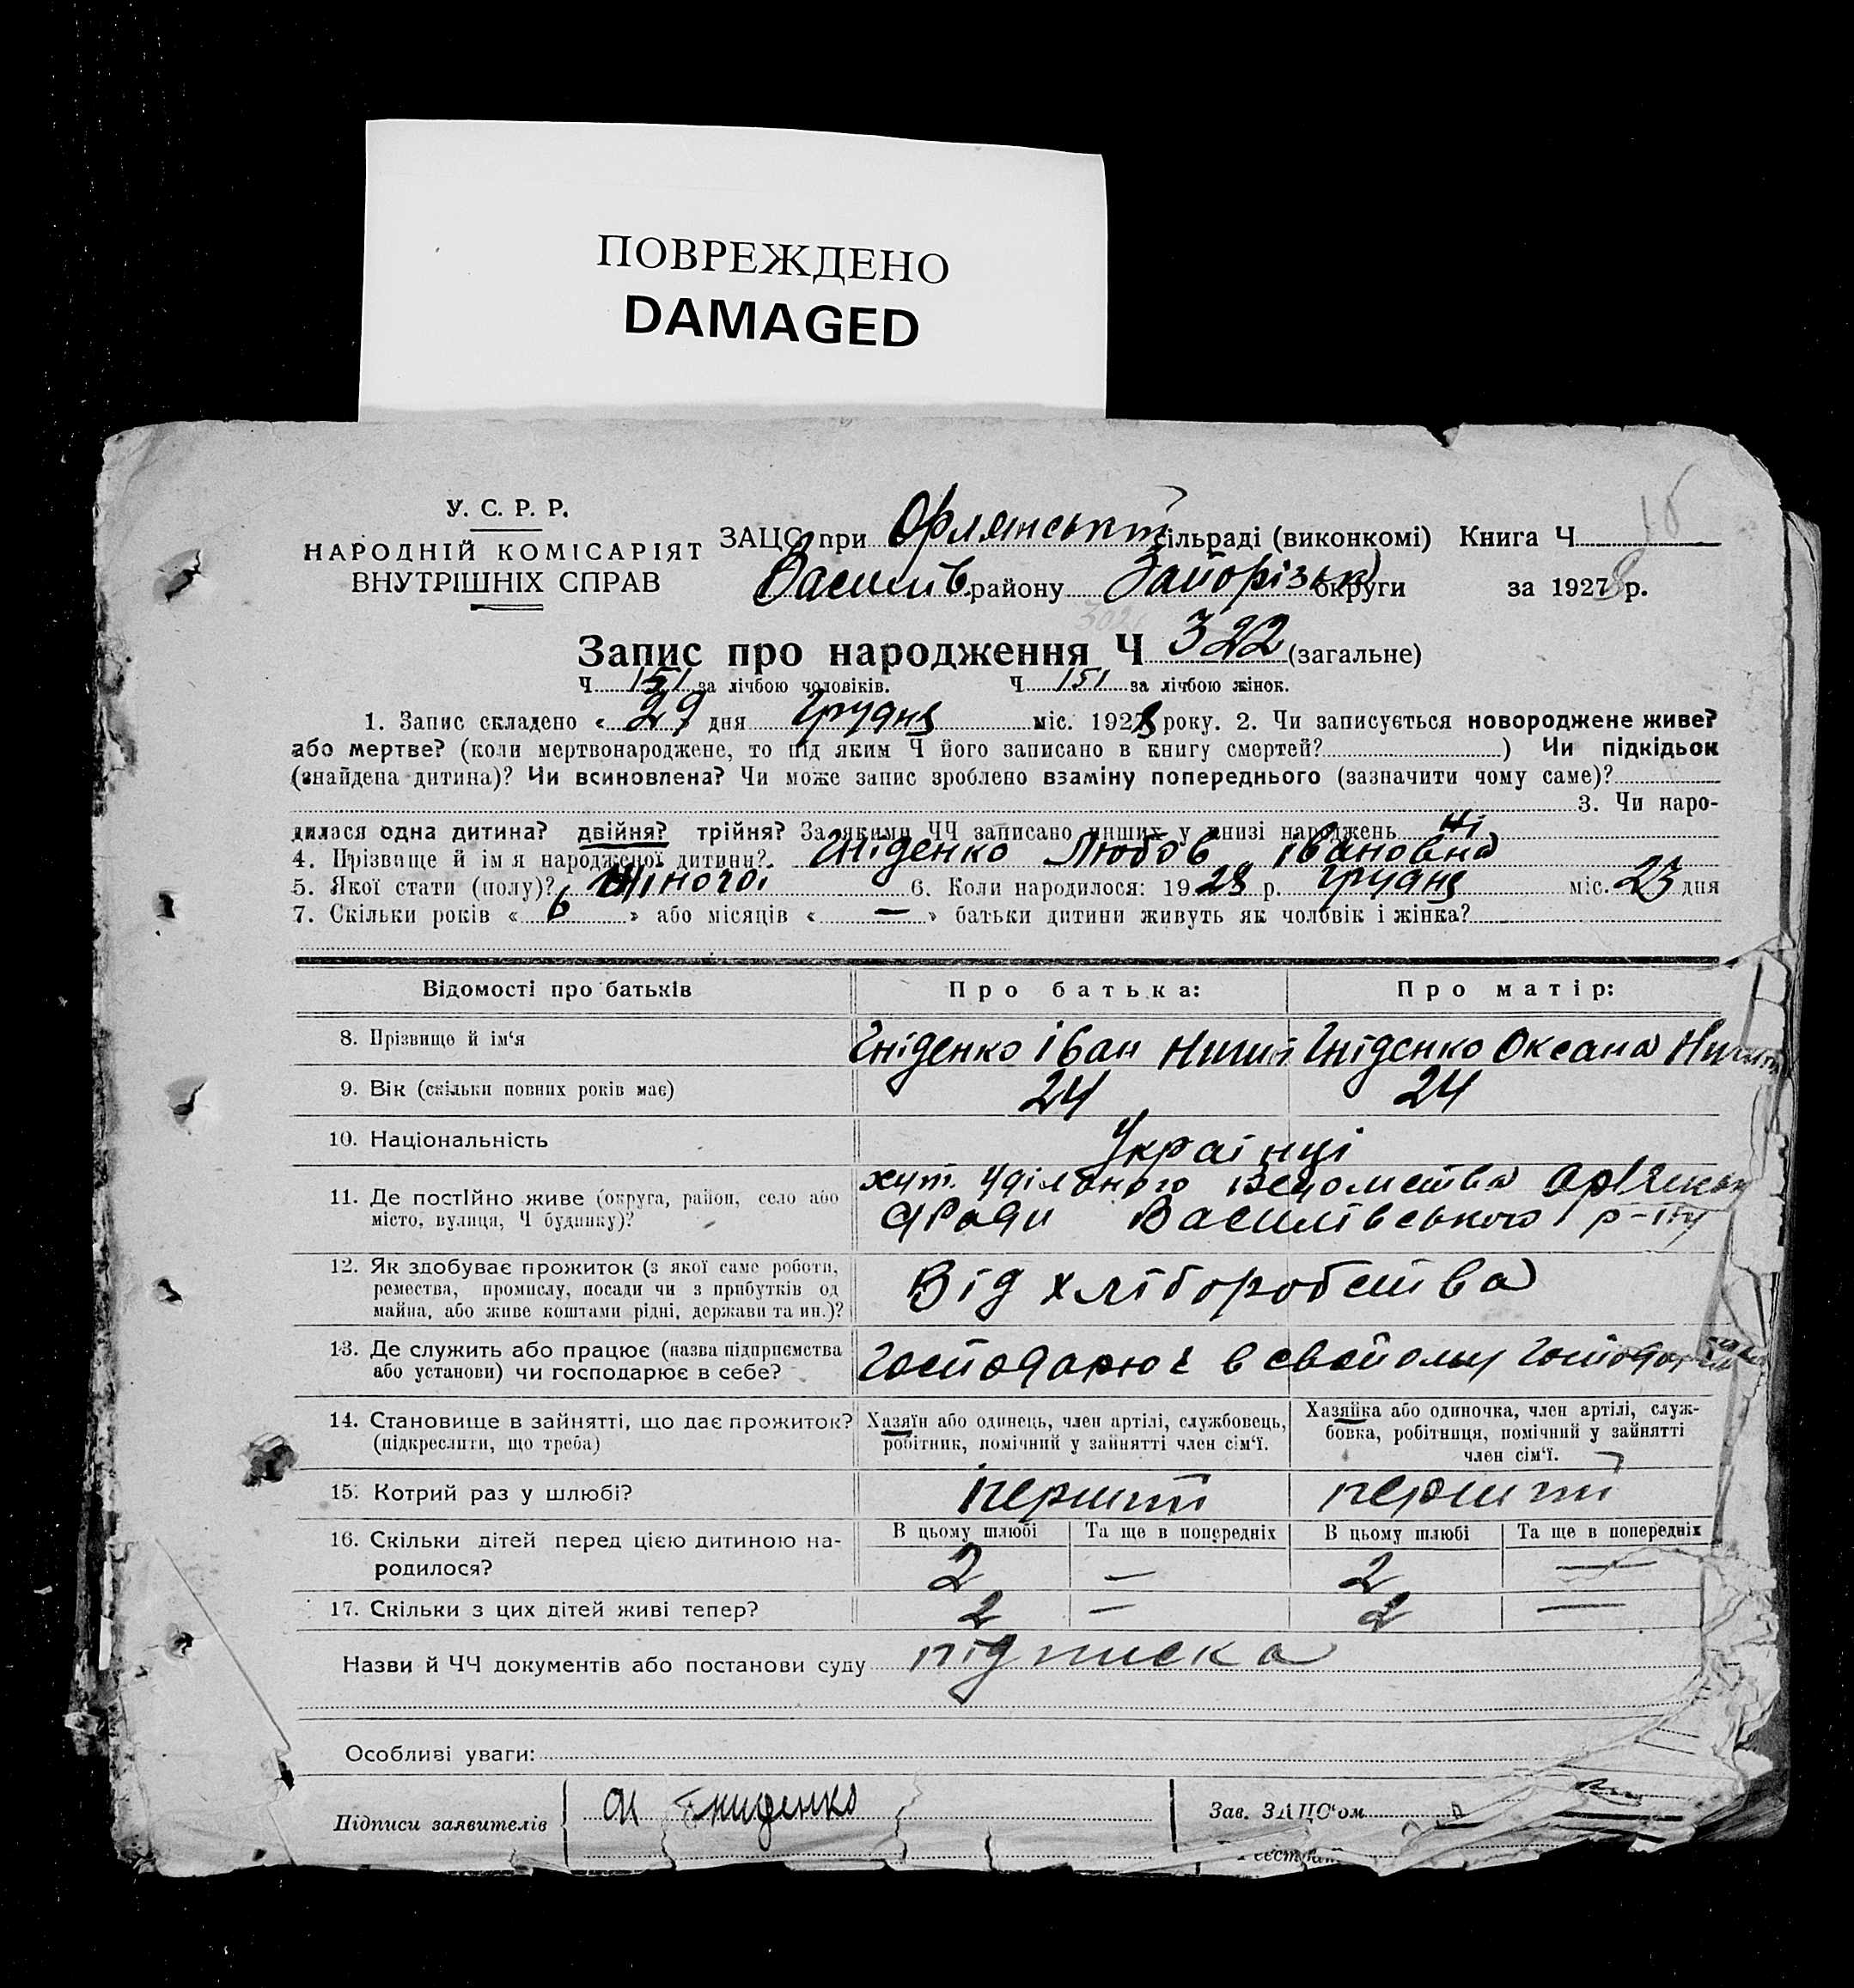 ПОВРЕЖДЕНО
DAMAGED
У. С. Р. Р.
НАРОДНІЙ КОМІСАРІЯТ
ВНУТРІШНІХ СПРАВ
ЗАЦС при Орлянській сільраді (виконкомі) Книга Ч
Василів. району Запорізьк округи за 1928 р.
Запис про народження Ч 322 (загальне)
Ч 151 за лічбою чоловіків. Ч 151 за лічбою жінок.
1. Запис складено « 29 » дня Грудня міс. 1928 року. 2. Чи записується новороджене живе?
або мертве? (коли мертвонароджене, то під яким Ч його записано в книгу смертей? ) Чи підкідьок
(знайдена дитина)? Чи всиновлена? Чи може запис зроблено взаміну попереднього (зазначити чому саме)?
3. Чи наро-
дилася одна дитина? двійня? трійня? За якими ЧЧ записано инших у книзі народжень Ні
4. Прізвище й ім'я народженої дитини? Гніденко Любов Івановна
5. Якої стати (полу)? Жіночої 6. Коли народилося: 1928 р. Грудня міс. 23 дня
7. Скільки років « 6 » або місяців « — » батьки дитини живуть як чоловік і жінка?
Відомості про батьків Про батька: Про матір:
8. Прізвище й ім'я Гніденко Іван Гніденко Оксана
9. Вік (скільки повних років має) 24 24
10. Національність Українці
11. Де постійно живе (округа, район, село або
місто, вулиця, Ч будинку)?
хут. Удільного
Василівського р-ну
12. Як здобуває прожиток (з якої саме роботи,
ремества, промислу, посади чи з прибутків од
майна, або живе коштами рідні, держави та ин.)?
Від хліборобства
13. Де служить або працює (назва підприємства
або установи) чи господарює в себе?
Господарює в свойому
14. Становище в зайнятті, що дає прожиток?
(підкреслити, що треба)
Хазяїн або одинець, член артілі, службовець,
робітник, помічний у зайнятті член сім'ї.
Хазяйка або одиночка, член артілі, служ-
бовка, робітниця, помічний у зайнятті
член сім'ї.
15. Котрий раз у шлюбі? перший перший
В цьому шлюбі Та ще в попередніх В цьому шлюбі Та ще в попередніх
16. Скільки дітей перед цією дитиною на-
родилося?
2 — 2 —
17. Скільки з цих дітей живі тепер? 2 — 2 —
Назви й ЧЧ документів або постанови суду підписка
Особливі уваги:
Підписи заявителів Гниденко
Зав. ЗАЦС'ом